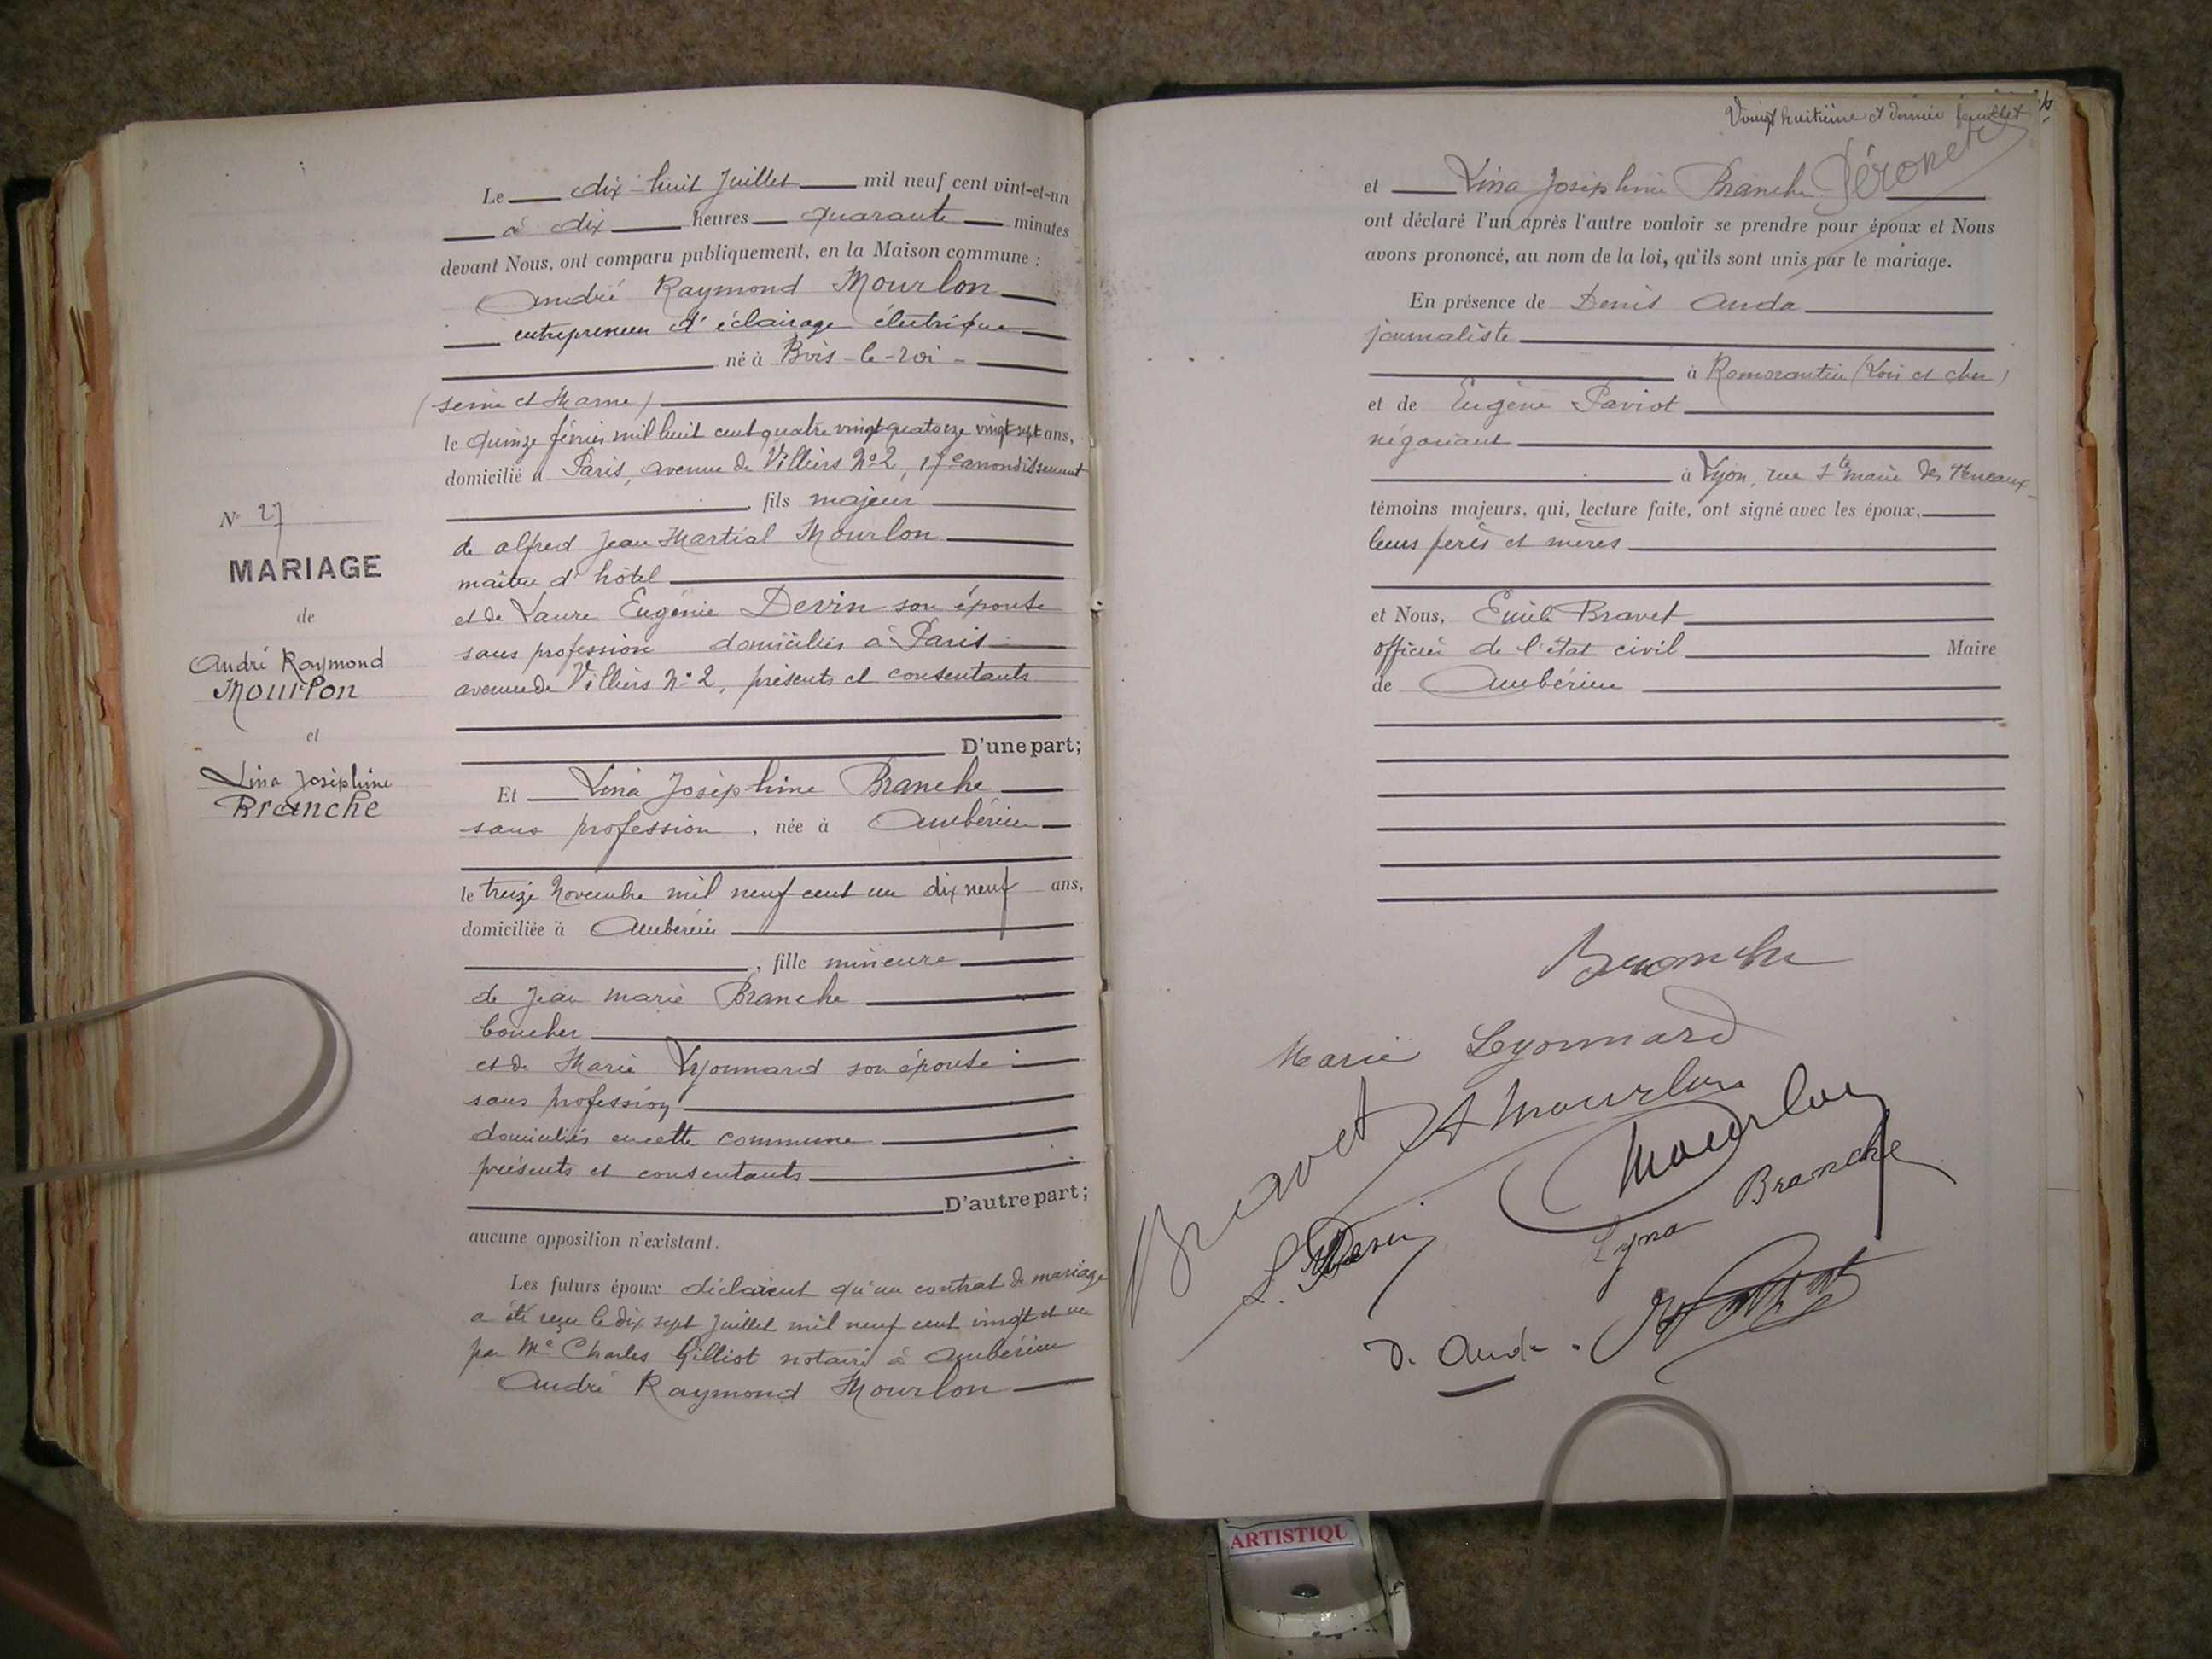 Le dix-huit Juillet mil neuf cent vint-et-un
à dix heures quarante minutes
devant Nous, ont comparu publiquement, en la Maison commune :
André Raymond Mourlon
entrepreneur d'éclairage électrique
né à Bois-le-roi
(seine et Marne)
le quinze février mil huit cent quatre vingt quatorze vingt sept ans,
domicilié à Paris, avenue de Villiers No 2, 17e arrondissement
fils majeur
de alfred Jean Martial Mourlon
maître d'hôtel
et de Laure Eugénie Devin son épouse
sans profession domiciliés à Paris
avenue de Villiers No 2, présents et consentants
D'une part;
Et Lina Joséphine Branche
sans profession, née à Ambérieu
le treize Novembre mil neuf cent un dix neuf ans,
domiciliée à Ambérieu
, fille mineure
de Jean Marie Branche
boucher
et de Marie Lyonnard son épouse
sans profession
domiciliés en cette commune
présents et consentants
D'autre part;
aucune opposition n'existant.
Les futurs époux déclarent qu'un contrat de mariage
a été reçu le dix sept Juillet mil neuf cent vingt et un
par Me Charles Gilliot notaire à Ambérieu
André Raymond Mourlon
No 27
MARIAGE
de
André Raymond
Mourlon
et
Lina Joséphine
Branche
Vingt huitième et dernier feuillet
et Lina Joséphine Branche
ont déclaré l'un après l'autre vouloir se prendre pour époux et Nous
avons prononcé, au nom de la loi, qu'ils sont unis par le mariage.
En présence de Denis Auda
journaliste
à Romorantin (Loir et cher)
et de Eugène Paviot
négociant
à Lyon, rue Ste marie des Terreaux
témoins majeurs, qui, lecture faite, ont signé avec les époux,
leurs pères et mères
et Nous, Emile Bravet
officier de l'état civil Maire
de Ambérieu
Branche
Marie Lyonnard
Bravet
A Mourlon
Mourlon
L. Devin
Lyna Branche
D. Auda
ARTISTIQU